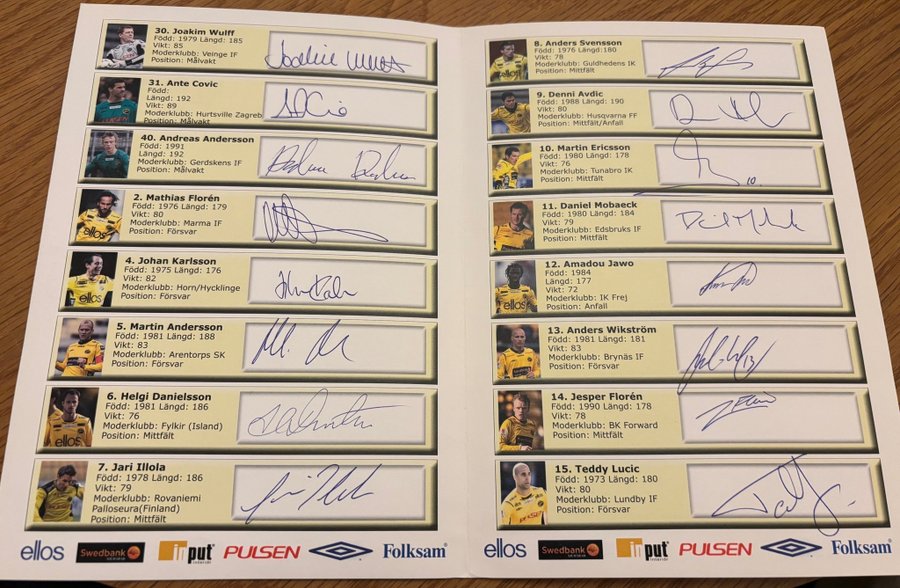 30. Joakim Wulff
Född: 1979 Längd: 185
Vikt: 85
Moderklubb: Veinge IF
Position: Målvakt
31. Ante Covic
Född:
Längd: 192
Vikt: 89
Moderklubb: Hurtsville Zagreb
Position: Målvakt
40. Andreas Andersson
Född: 1991
Längd: 192
Moderklubb: Gerdskens IF
Position: Målvakt
2. Mathias Florén
Född: 1976 Längd: 179
Vikt: 80
Moderklubb: Marma IF
Position: Försvar
ellos
4. Johan Karlsson
Född: 1975 Längd: 176
Vikt: 82
Moderklubb: Horn/Hycklinge
Position: Försvar
ellos
5. Martin Andersson
Född: 1981 Längd: 188
Vikt: 83
Moderklubb: Arentorps SK
Position: Försvar
6. Helgi Danielsson
Född: 1981 Längd: 186
Vikt: 76
Moderklubb: Fylkir (Island)
Position: Mittfält
ellos
7. Jari Illola
Född: 1978 Längd: 186
Vikt: 79
Moderklubb: Rovaniemi
Palloseura(Finland)
Position: Mittfält
ellos Swedbank input interiör PULSEN UMBRO Folksam
8. Anders Svensson
Född: 1976 Längd:180
Vikt: 78
Moderklubb: Guldhedens IK
Position: Mittfält
ellos
9. Denni Avdic
Född: 1988 Längd: 190
Vikt: 80
Moderklubb: Husqvarna FF
Position: Mittfält/Anfall
10. Martin Ericsson
Född: 1980 Längd: 178
Vikt: 76
Moderklubb: Tunabro IK
Position: Mittfält
10.
11. Daniel Mobaeck
Född: 1980 Längd: 184
Vikt: 79
Moderklubb: Edsbruks IF
Position: Mittfält
12. Amadou Jawo
Född: 1984
Längd: 177
Vikt: 72
Moderklubb: IK Frej
Position: Anfall
ellos
13. Anders Wikström
Född: 1981 Längd: 181
Vikt: 83
Moderklubb: Brynäs IF
Position: Försvar
13
14. Jesper Florén
Född: 1990 Längd: 178
Vikt: 78
Moderklubb: BK Forward
Position: Mittfält
15. Teddy Lucic
Född: 1973 Längd: 180
Vikt: 80
Moderklubb: Lundby IF
Position: Försvar
ellos Swedbank input interiör PULSEN UMBRO Folksam